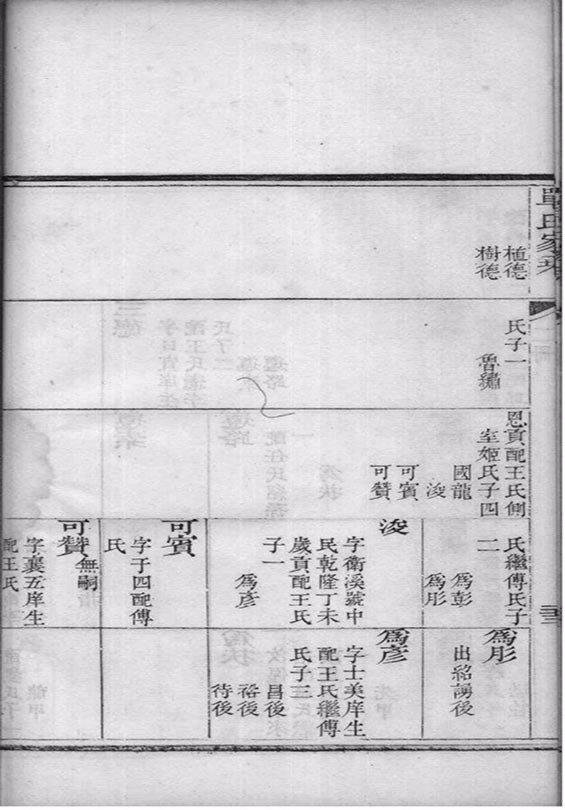 氏家乘
植德
樹德
氏子一
魯繡
恩貢配王氏側
室姬氏子四
國龍
浚
可賓
可贊
氏繼傅氏子
二
為彭
為彤
浚
字衛溪號中
民乾隆丁未
歲貢配王氏
子一
為彥
可賓
字于四配傅
氏
無嗣
可贊
字襄五庠生
配王氏
為彤
出紹謗後
為彥
字士美庠生
配王氏繼傅
氏子三
昌後
裕後
待後